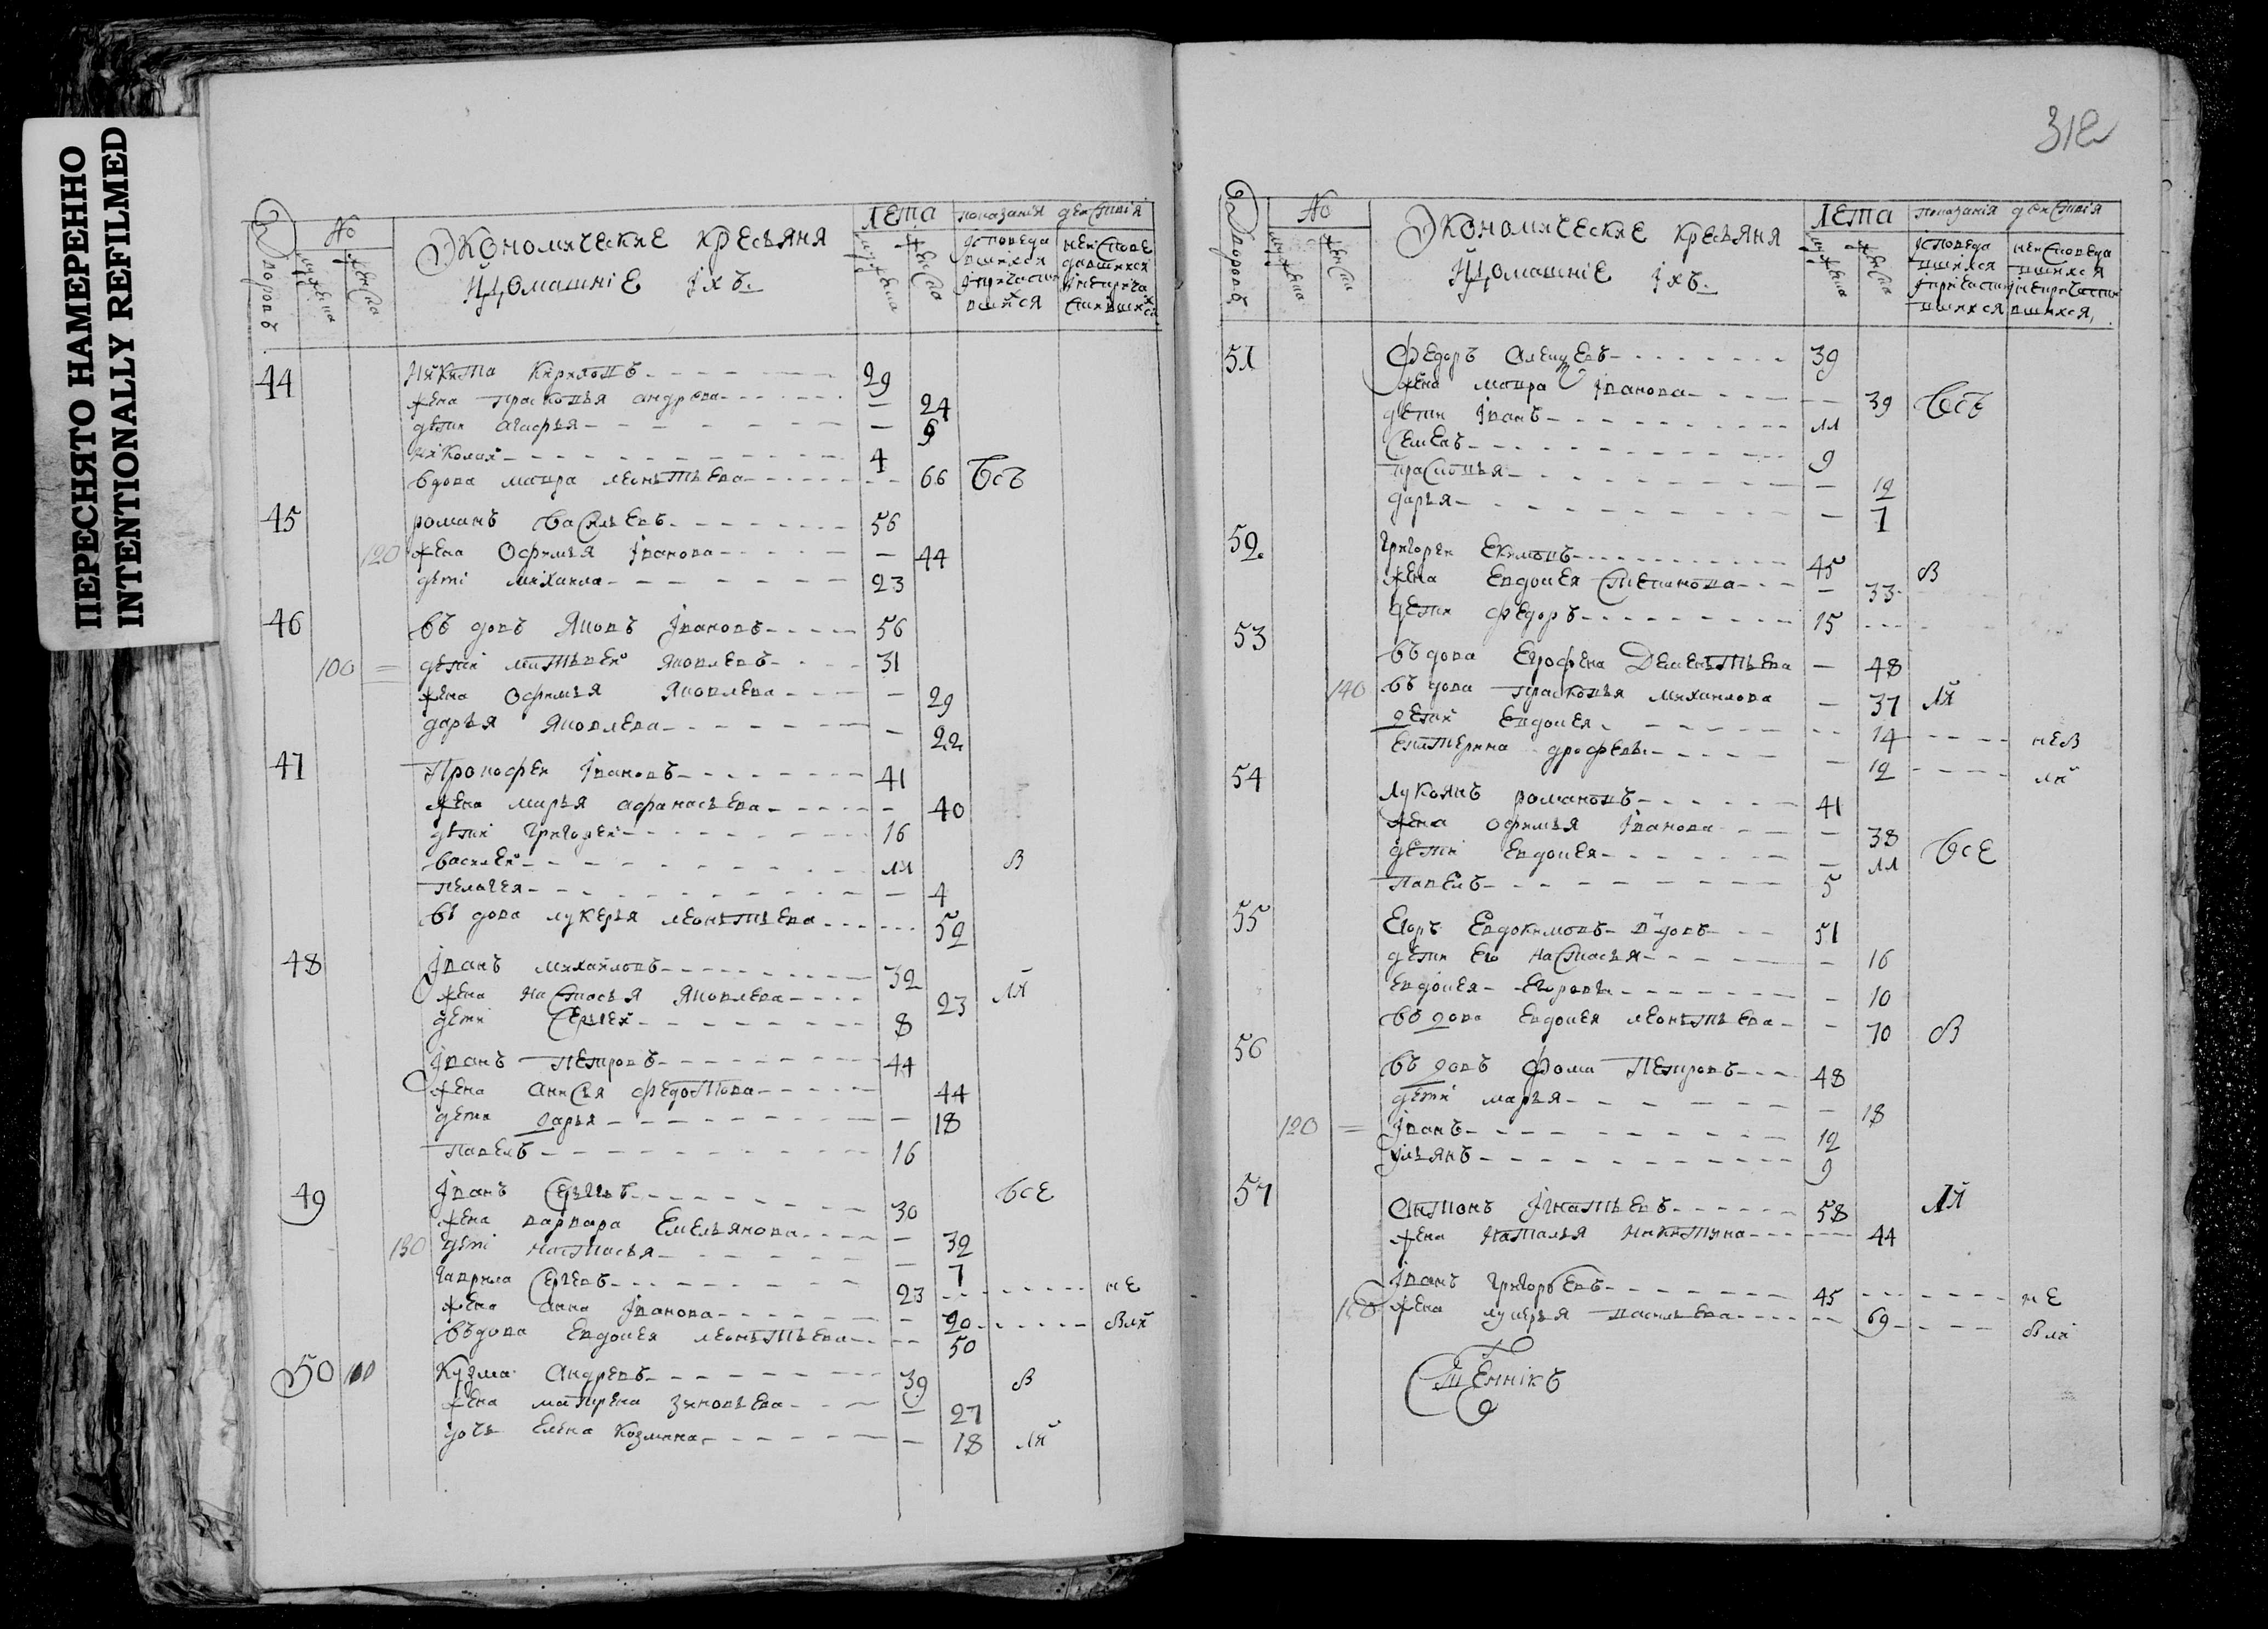 ПЕРЕСНЯТО НАМЕРЕННО
INTENTIONALLY REFILMED
312
Дворовъ
No
мужеска
женска
Экономические кресьяня
И домашніе ихъ.
Лета
мужеска
женска
показания действія
44 Никита Кирилов 29
жена Прасковья андрева — 24
дети агафья — 6
николай 4
вдова мавра леонътьева 66 Всъ
45 романъ Василъевъ 56
120 жена Офимъя Iванова — 44
деті михаила 23
46 въдовъ Яковъ Iвановъ 56
100 = дети матъвей яковлевъ 31
жена Офимъя Яковлева — 29
даръя Яковлева — 22
47 Прокофеи Iвановъ 41
жена маръя афанасъева — 40
дети григорей 16
василей 11 В
пелагея — 4
въдова лукеръя леонътъева 52
48 Iванъ михайловъ 32
жена настасъя Яковлева 23 ля
дети Сергей 8
Iванъ Петровъ 44
жена анисъя федотова 44
дети даръя — 18
павелъ 16
49 Iванъ Сергевъ 30 Все
жена варвара Емелъянова — 32
130 деті настасъя — 7
гаврила Сергевъ 23 не
жена анна Iванова — 20 Вля
въдова Евдокея леонътъева — 50
50 110 Кузма Андревъ 39 В
жена матрена зиновъева — 27
дочъ Елена Козмина — 18 ля
Дворовъ
No
мужеска
женска
Экономические кресьяня
И домашніе ихъ.
Лета
мужеска
женска
показанія действія
51 Федоръ 39
жена мавра Iванова — 39 Всъ
дети Iванъ 11
Семенъ 9
прасковъя — 12
даръя — 7
52 григореи Екимовъ 45 В
жена Евдокея Степанова — 33
дети федоръ 15
53 въдова Ерофена Дементъева — 48
140 въдова прасковъя михаилова — 37 ля
дети Евдокея 14 нев
Екатерина — 12 ля
54 Лукоянъ романовъ 41
жена офимъя Iванова — 38
дети Евдокея — 11 Все
павелъ 5
55 Егоръ Евдокимовъ вдовъ 51
дети его настасъя — 16
Евдокея Егорова — 10
въдова Евдокея леонътъева — 70 В
56 въдовъ Фома Петровъ 48
деті маръя — 18
120 = Iванъ 12
улъянъ 9
57 Антонъ Iгнатъевъ 58 ля
жена наталъя никитина 44
Iванъ Григоръевъ 45 не
150 жена лукеръя василъева 69 Вля